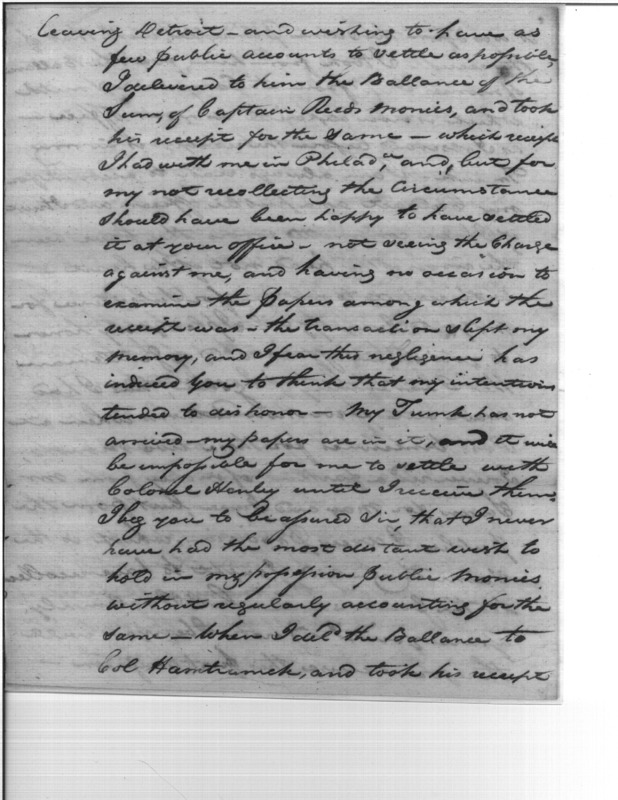 leaving Detroit - and wishing to have as
few public accounts to settle as possible,
I delivered to him the Ballance of the
Sum, of Captain Reeds monies, and took
his receipt for the same - which receipt
I had with me in Philad,a and, but for
my not recollecting the Circumstance
should have been happy to have settled
it at your office - not seeing the Charge
against me, and having no occasion to
examine the papers among which the
receipt was - the transaction slept my
memory, and I fear this negligence has
induced you to think that my intentions
tended to dishonor - My Trunk has not
arrived - my papers are in it, and it will
be impossible for me to settle with
Colonel Henley until I receive them,
I beg you to be assured Sir, that I never
have had the most distant wish to
hold in my possession public monies
without regularly accounting for the
same - When I deld the Ballance to
Col Hamtramck, and took his receipt